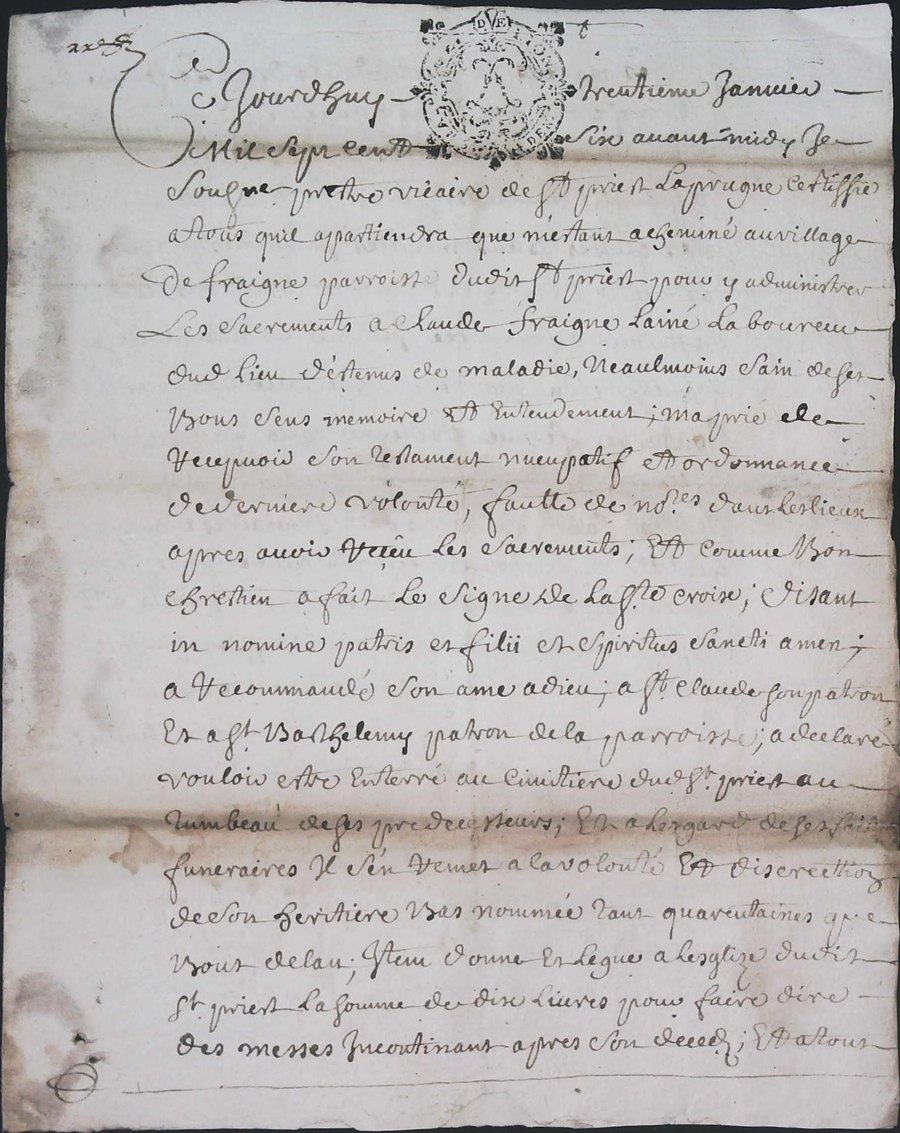 Ce Jourdhuy trentieme Janvier
Mil sept cent six avant midy Je
Sousne prestre vicaire de St priest Laprugne certiffie
atous quil apartiendra que m'estant acheminé au village
De fraigne parroisse dudit St priest pour y administrer
Les Sacrements a Claude fraigne lainé Laboureur
dud lieu détenus de maladie, Neaulmoins Sain de ses
Bons Sens memoire Et Entendement; ma prié de
recepvoir son testament nucupatif et ordonnance
de derniere volonté, faulte de nores dans les lieux
apres avoir reçeu les sacrements; Et comme Bon
chrestien a fait Le Signe de la Ste croix; disant
in nomine patris et filii et spiritus sancti amen;
a recommandé Son ame a dieu; a St Claude son patron
Et a St Barthelemy patron de la parroisse; a declaré
vouloir estre Enterré au cimitiere dud St priest au
tumbeau de ses predecesseurs; Et a lesgard de ses frais
funeraires Il s'en remet a la volonté Et discrettion
de son heritiere Bas nommée tant quarentaines que
Bout delan; Item donne Et Legue a lesglize dudit
St priest La somme de dix Livres pour faire dire
des messes Incontinant apres Son deced; Et a tout